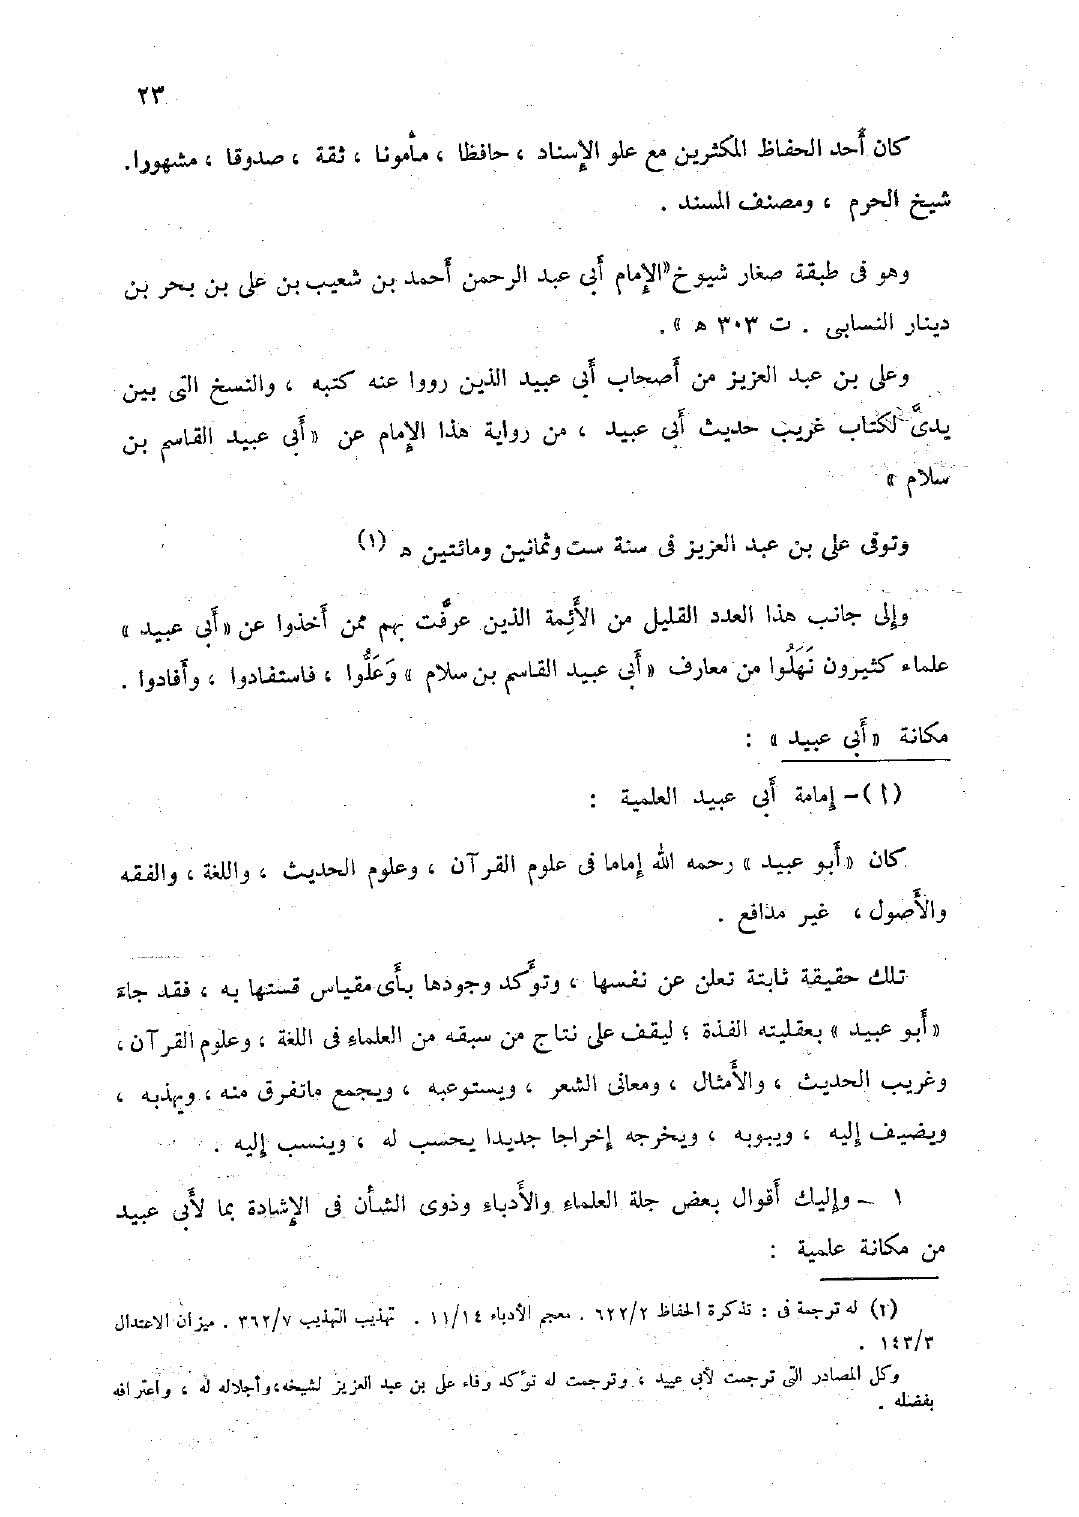 ٢٣
كان أحد الحفاظ المكثرين مع علو الإسناد ، حافظا ، مأمونا ، ثقة ، صدوقا ، مشهورا.
شيخ الحرم ، ومصنف المسند .
وهو فى طبقة صغار شيوخ «الإمام أبى عبد الرحمن أحمد بن شعيب بن على بن بحر بن
دينار النسابى . ت ٣٠٣ ه » .
وعلى بن عبد العزيز من أصحاب أبى عبيد الذين رووا عنه كتبه ، والنسخ التى بين
يدىَّ لكتاب غريب حديث أبى عبيد ، من رواية هذا الإمام عن «أبى عبيد القاسم بن
سلام »
وتوفى على بن عبد العزيز فى سنة ست وثمانين ومائتين ه (١)
وإلى جانب هذا العدد القليل من الأَئِمة الذين عرَّفت بهم ممن أخذوا عن «أبى عبيد »
علماء كثيرون نَهَلُوا من معارف «أبى عبيد القاسم بن سلام » وَعَلُّوا ، فاستفادوا ، وأفادوا .
مكانة «أبى عبيد » :
(ا) – إمامة أبى عبيد العلمية :
كان «أبو عبيد » رحمه الله إماما فى علوم القرآن ، وعلوم الحديث ، واللغة ، والفقه
والأصول ، غير مدافع .
تلك حقيقة ثابتة تعلن عن نفسها ، وتؤكد وجودها بأى مقياس قستها به ، فقد جاء
«أبو عبيد » بعقليته الفذة ؛ ليقف على نتاج من سبقه من العلماء فى اللغة ، وعلوم القرآن ،
وغريب الحديث ، والأمثال ، ومعانى الشعر ، ويستوعبه ، ويجمع ماتفرق منه ، ويهذبه ،
ويضيف إليه ، ويبوبه ، ويخرجه إخراجا جديدا يحسب له ، وينسب إليه .
١ – وإليك أقوال بعض جلة العلماء والأدباء وذوى الشأن فى الإشادة بما لأبى عبيد
من مكانة علمية :
(١) له ترجمة فى : تذكرة الحفاظ ٦٢٢/٢ . معجم الأدباء ١١/١٤ . تهذيب التهذيب ٣٦٢/٧ . ميزان الاعتدال
١٤٣/٣ .
وكل المصادر التى ترجمت لأبى عبيد ، وترجمت له تؤكد وفاء على بن عبد العزيز لشيخه، وأجلاله له ، واعترافه
بفضله .